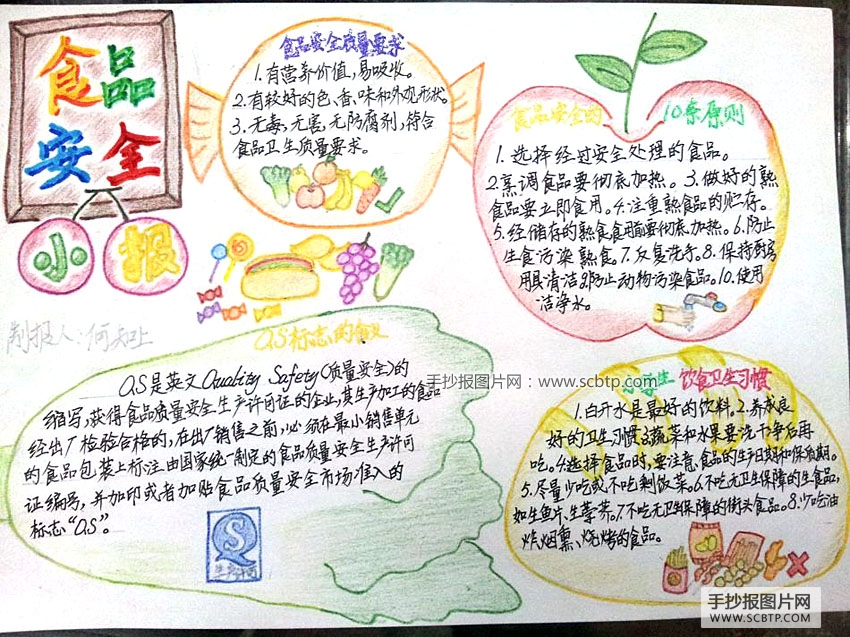 食品
安全
小报
制报人:何知上
食品安全质量要求
1.有营养价值,易吸收。
2.有较好的色、香、味和外观形状。
3.无毒,无害,无防腐剂,符合
食品卫生质量要求。
食品安全的 10条原则
1.选择经过安全处理的食品。
2.烹调食品要彻底加热。3.做好的熟
食品要立即食用。4.注重熟食品的贮存。
5.经储存的熟食食用前要彻底加热。6.防止
生食污染熟食。7.反复洗手。8.保持厨房
用具清洁。9.防止动物污染食品。10.使用
洁净水。
Q.S标志的含义
Q.S是英文Quality Safety(质量安全)的
缩写,获得食品质量安全生产许可证的企业,其生产加工的食品
经出厂检验合格的,在出厂销售之前,必须在最小销售单元
的食品包装上标注由国家统一制定的食品质量安全生产许可
证编号,并加印或者加贴食品质量安全市场准入的
标志“Q.S”。
QS
生产许可
手抄报图片网:www.scbtp.com
小学生 饮食卫生习惯
1.白开水是最好的饮料。2.养成良
好的卫生习惯。3.蔬菜和水果要洗干净后再
吃。4.选择食品时,要注意食品的生产日期和保质期。
5.尽量少吃或不吃剩饭菜。6.不吃无卫生保障的生食品,
如生鱼片,生荸荠。7.不吃无卫生保障的街头食品。8.少吃油
炸、烟熏、烧烤的食品。
手抄报图片网
WWW.SCBTP.COM